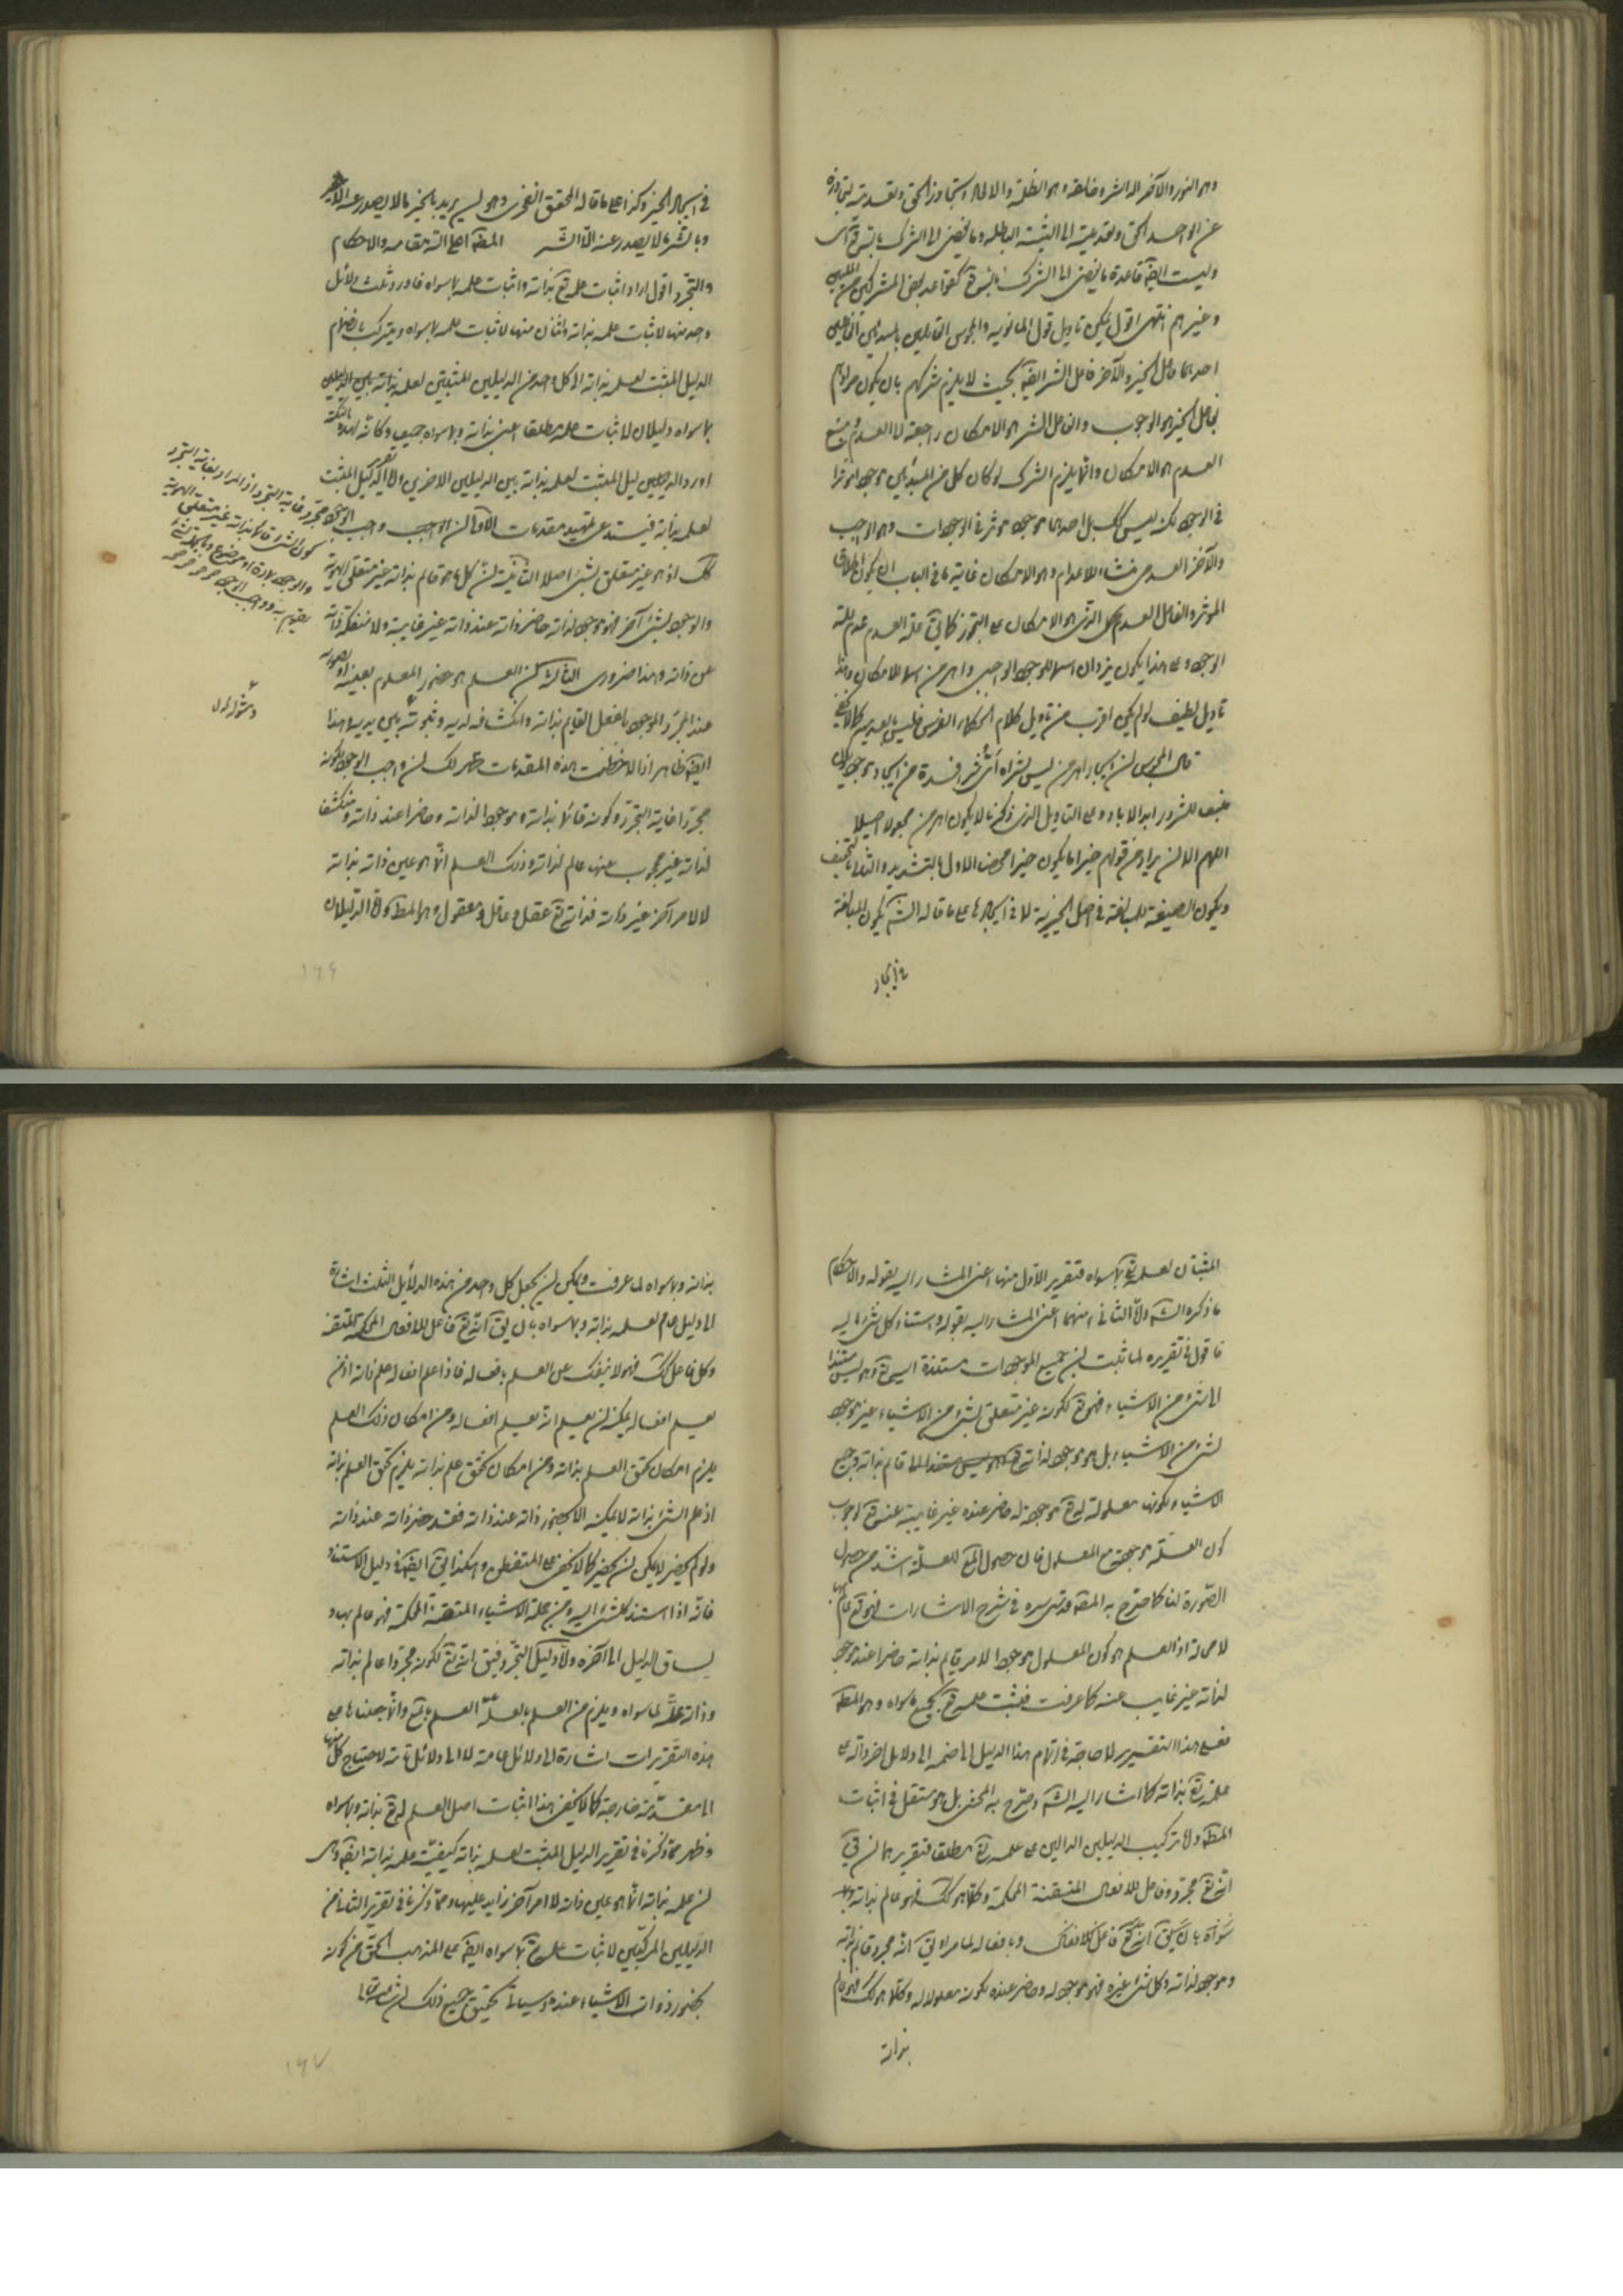 وهو النور والآخر اله الشر وخالقه وهو الظلمة والا لجاوز الحق وتعديته
عن الواحد الحق وتعديته الى اثنينية الباطلة وما يفضى الى الشرك
وليست ايضا قاعدة ما يفضى الى الشرك كقواعد بعض المشركين من
وغيرهم انتهى اقول يمكن تاويل قول المانوية والمجوس القايلين بالمبدئين القائلين
احدهما فاعل الخير والآخر فاعل الشر ايضا بحيث لا يلزم شركهم بان يكون مرادهم
بفاعل الخير هو الوجوب وبفاعل الشر هو الامكان راجعة الى العدم
العدم هو الامكان وانما يلزم الشرك لو كان كل من المبدئين موجودا مؤثرا
فى الوجود لكن ليس كك بل احدهما موجود مؤثر فى الوجودات وهو الواجب
والآخر العدمى منشاء للاعدام وهو الامكان غاية ما فى الباب ان يكون اطلاق
المؤثر والفاعل العدمى الذى هو الامكان على التجوز كما فى علة العدم عدم علة
الوجود وعلى هذا يكون يزدان اسما للوجود الواجبى واهرمن اسما للامكان وهذا
تاويل لطيف لو لم يكن اقرب من تاويل كلام الحكماء الفرس فليس بابعد منه كما لا يخفى
قال المجوس ان ايجاد اهرمن ليس بشر اذ اى شر افسد من ايجاد موجود يكون
منبع للشرور ابد الاباد وعلى التاويل الذى ذكرنا لا يكون اهرمن مجعولا اصلا
اللهم الا ان يراد من قولهم خيرا ما يكون خيرا محضا الاول بالتشديد والثانى بالتخفيف
ويكون الصيغة للمبالغة فى اصل الخيرية لا فى ايجادها على ما قاله الش يكون المبالغة
فى ايجاد
فى ايجاد الخير وكذا على ما قاله المحقق الفخرى وهو ليس يريد بالخير ما لا يصدر عنه الا الخير
وبالشر ما لا يصدر عنه الا الشر المصـ اعلى الله مقامه والاحكام
والتجرد اقول اراد اثبات علمه تع بذاته واثبات علمه بما سواه فاورد ثلث دلائل
واحد منها لاثبات علمه بذاته واثنان منها لاثبات علمه بما سواه ويتركب بانضمام
الدليل المثبت لعلمه بذاته الى كل واحد من الدليلين المثبتين
بما سواه دليلان لاثبات علمه مطلقا اعنى بذاته وبما سواه جميعا وكانه لهذه النكتة
اورد الدليل المثبت لعلمه بذاته بين الدليلين الاخرين واما تقرير الدليل المثبت
لعلمه بذاته فيستدعى تمهيد مقدمات الاولى ان الواجب واجب الوجود
كك اذ هو غير متعلق بشىء اصلا الثانية ان كل ما هو قايم بذاته غير متعلق الهوية
والوجود بشىء آخر فهو موجود لذاته حاضر ذاته عند ذاته غير غايبة ولا منفكة ذاته
عن ذاته وهذا ضرورى الثالثة ان العلم هو حضور المعلوم بعينه او بصورته
عند المجرد الموجود بالفعل القايم بذاته وانكشافه لديه وثبوته بين يديه وهذا
ايضا ظاهر اذا لاحظت هذه المقدمات ظهر لك ان واجب الوجود لكونه
مجردا غاية التجرد وكونه قائما بذاته وموجودا لذاته وحاضرا عند ذاته ومنكشفا
لذاته غير محجوب عنها عالم لذاته وذلك العلم انما هو عين ذاته بذاته
لا لامر آخر غير ذاته فذاته تع عقل وعاقل ومعقول وهو المط واما الدليلان
مجرد غاية التجرد اذ المراد بغاية التجرد
كون الشىء قائما بذاته غير متعلق الهوية
والوجود بمادة او موضوع
يقوم به وواجب الوجود
١٤٦
المثبتان لعلمه تع بما سواه فتقرير الاول منهما اعنى المشار اليه بقوله والاحكام
ما ذكره الش واما الثانى منهما اعنى المشار اليه بقوله واستناد كل شىء اليه
فاقول فى تقريره لما ثبت ان جميع الموجودات مستندة اليه تع وهو ليس مستندا
الى شىء من الاشياء فهو تع لكونه غير متعلق بشىء من الاشياء غير موجود
لشىء من الاشياء بل هو موجود لذاته قايم بذاته وجميع
الاشياء لكونها معلولة له تع موجودة له حاضر عنده غير غايبة عنه تع لوجوب
كون العلة موجودة مع المعلول فان حصول المع للعلة اشد من حصول
الصورة لنا كما صرح به المصـ قدس سره فى شرح الاشارات فهو تع عالم بها
لا محالة اذ العلم هو كون المعلول موجودا لامر قايم بذاته حاضرا عند موجود
لذاته غير غايب عنه كما عرفت فيثبت علمه تع بجميع ما سواه وهو المط
فعلى هذا التقرير لا حاجة فى اتمام هذا الدليل الى ضمه الى دلايل اخر دالة على
علمه تع بذاته كما اشار اليه الش وصرح به المحشى بل هو مستقل فى اثبات
المط واما تركيب الدليلين الدالين على علمه تع مطلقا فتقريرهما ان يق
انه تع مجرد وفاعل للافعال المتقنة المحكمة وكلما هو كك فهو عالم بذاته وبما
سواه بان يق انه تع فاعل للافعال وبافعاله لما مر او يق انه مجرد قايم بذاته
وموجود لذاته وكل شىء غيره فهو موجود له وحاضر عنده لكونه معلولا له وكلما هو كك فهو عالم
بذاته
بذاته وبما سواه لما عرفت ويمكن ان يجعل كل واحد من هذه الدلايل الثلث اشارة
الى دليل عام لعلمه بذاته وبما سواه بان يق انه تع فاعل للافعال المحكمة المتقنة
وكل فاعل كك فهو لا ينفك عن العلم بافعاله فاذا علم افعاله علم ذاته اذ من
يعلم افعاله يمكنه ان يعلم انه يعلم افعاله ومن امكان ذلك العلم
يلزم امكان تحقق العلم بذاته ومن امكان تحقق علم بذاته يلزم تحقق العلم بذاته
اذ علم الشىء بذاته لا يمكنه الا بحضور ذاته عند ذاته فقد حضر ذاته عند ذاته
ولو لم يحضر لا يمكن ان يحضر كما لا يخفى على المتفطن وهكذا يق ايضا فى دليل الاستناد
فانه اذا استند كل شىء اليه ومن جملة الاشياء المتقنة المحكمة فهو عالم بها و
يساق الدليل الى آخره واما دليل التجرد فيق انه تع لكونه مجردا عالم بذاته
وذاته علة لما سواه ويلزم من العلم بالعلة العلم بالمع وانما جعلناها على
هذه التقريرات اشارة الى دلائل عامة لا الى دلائل تامة لاحتياج كل منها
الى مقدمة خارجة كما لا يخفى هذا اثبات اصل العلم له تع بذاته وبما سواه
وظهر مما ذكرنا فى تقرير الدليل المثبت لعلمه بذاته كيفية علمه بذاته ايضا
ان علمه بذاته انما هو عين ذاته لا امر آخر زايد عليها ومما ذكرنا فى تقرير الثانى من
الدليلين المركبين لاثبات علمه تع بما سواه ايضا على المذهب الحق من كونه
بحضور ذوات الاشياء عنده وسياتى تحقيق جميع ذلك ان شاء الله تعالى
١٤٧